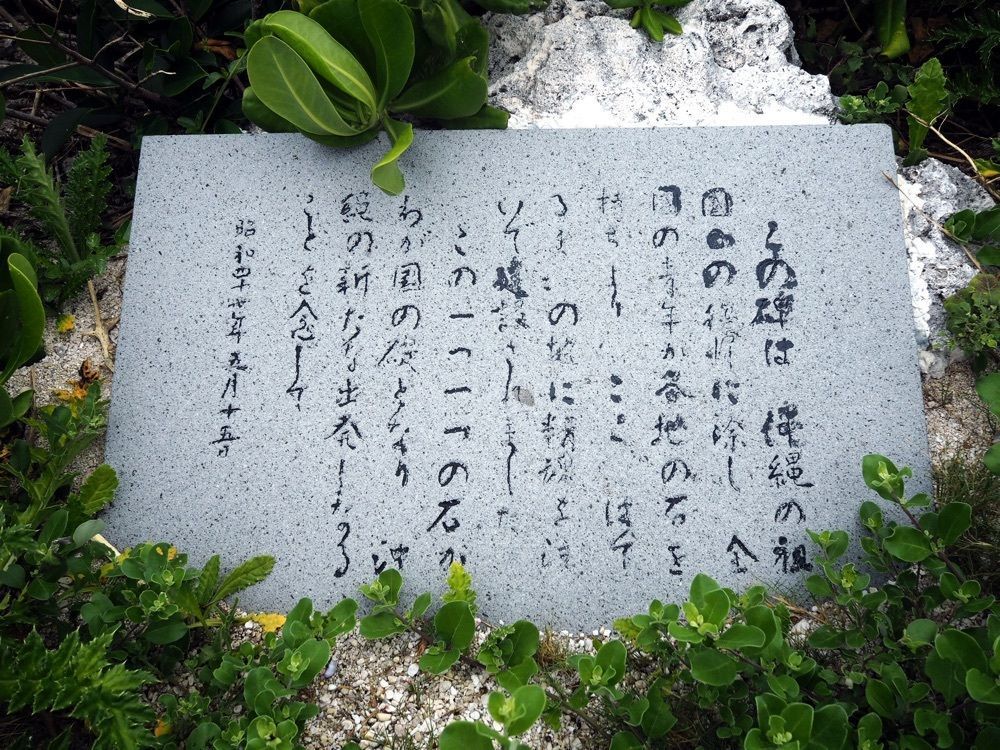 この碑は 沖縄の祖
国への復帰に際し 全
国の青年が各地の石を
持ちより ここ はて
るまの地に精魂を注
いで建設されました
この一つ一つの石が
わが国の礎となり 沖
縄の新たな出発となる
ことを念じて
昭和四十七年 九月十五日